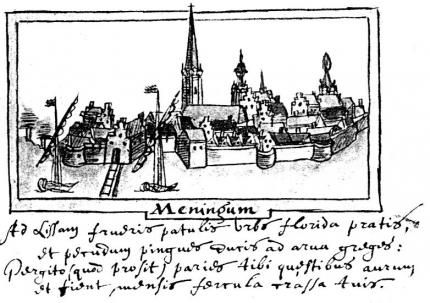 Meningum
Ad Lissam frueris patulis urbs florida pratis,
et pecudum pingues ducis ad arva greges:
Pergito (quod prosit) paries tibi questibus aurum
et fient mensis fercula crassa tuis.